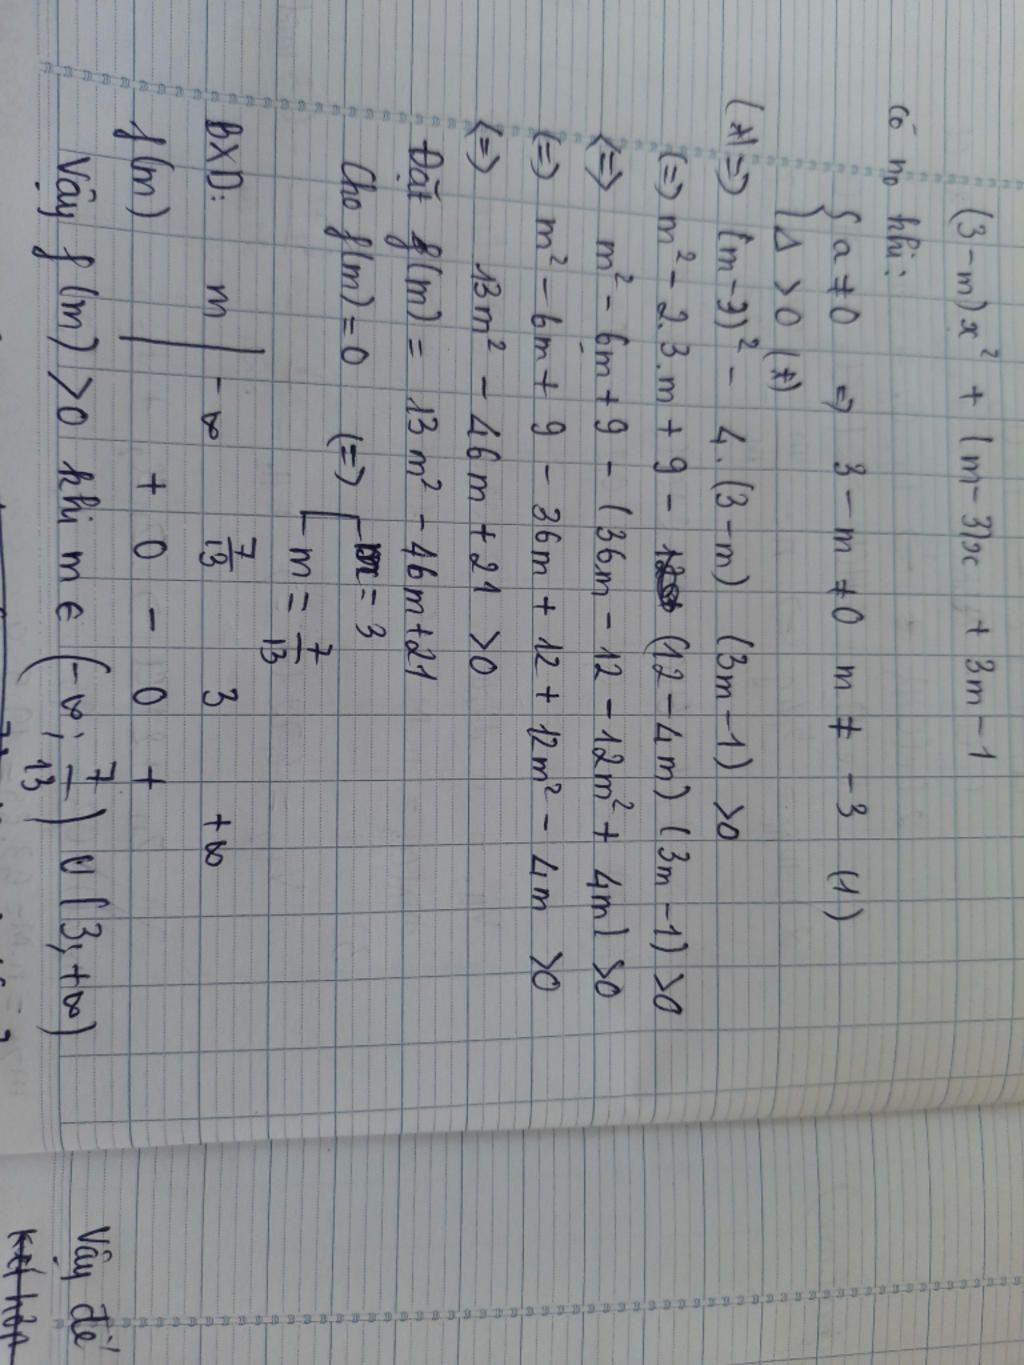 (3-m)x² + (m-3)x + 3m-1
có n₀ khi:
{ a ≠ 0 => 3-m ≠ 0 m ≠ -3 (1)
{ Δ > 0 (*)
(*) => (m-3)² - 4.(3-m) (3m-1) > 0
(=) m² - 2.3.m + 9 - (12-4m) (3m-1) > 0
<=> m² - 6m + 9 - (36m - 12 - 12m² + 4m) > 0
(=) m² - 6m + 9 - 36m + 12 + 12m² - 4m > 0
<=> 13m² - 46m + 21 > 0
Đặt f(m) = 13m² - 46m + 21
Cho f(m) = 0 (=) [ m = 3
m = 7/13
BXD: m | -∞ 7/13 3 +∞
f(m) | + 0 - 0 +
Vậy f(m) > 0 khi m ∈ (-∞; 7/13) ∪ (3; +∞)
Vậy để